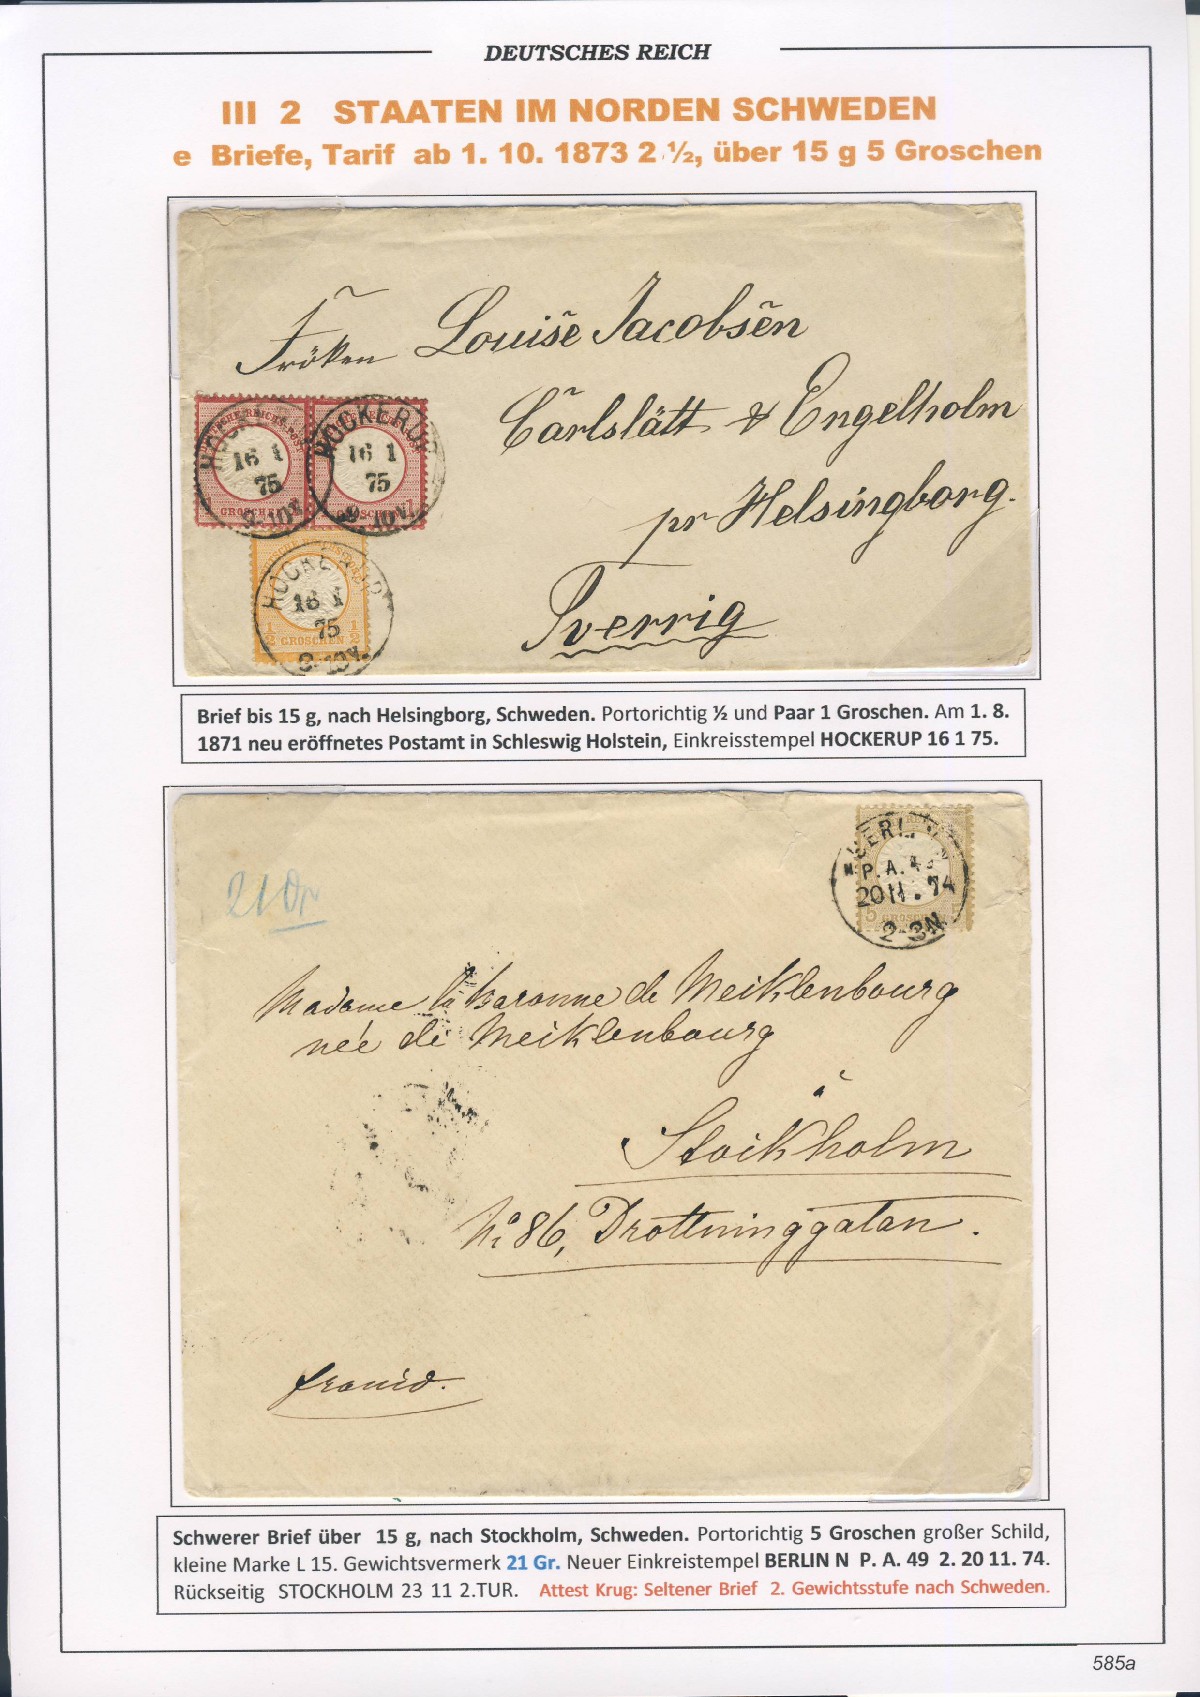 DEUTSCHES REICH
III 2 STAATEN IM NORDEN SCHWEDEN
e Briefe, Tarif ab 1. 10. 1873 2 ½, über 15 g 5 Groschen
Fröken Louise Jacobsen
Carlslätt & Engelholm
pr Helsingborg.
Sverrig
HOCKERUP
16 1
75
GROSCHEN
HOCKERUP
16 1
75
GROSCHEN
HOCKERUP
16 1
75
½ GROSCHEN ½
Brief bis 15 g, nach Helsingborg, Schweden. Portorichtig ½ und Paar 1 Groschen. Am 1. 8.
1871 neu eröffnetes Postamt in Schleswig Holstein, Einkreisstempel HOCKERUP 16 1 75.
BERLIN N
P. A. 49
20 11. 74
2-3N.
5 GROSCHEN
21 Gr
Madame la Baronne de Meiklenbourg
née de Meiklenbourg
à
Stockholm
No 86, Drottninggatan.
franco.
Schwerer Brief über 15 g, nach Stockholm, Schweden. Portorichtig 5 Groschen großer Schild,
kleine Marke L 15. Gewichtsvermerk 21 Gr. Neuer Einkreistempel BERLIN N P. A. 49 2. 20 11. 74.
Rückseitig STOCKHOLM 23 11 2.TUR. Attest Krug: Seltener Brief 2. Gewichtsstufe nach Schweden.
585a